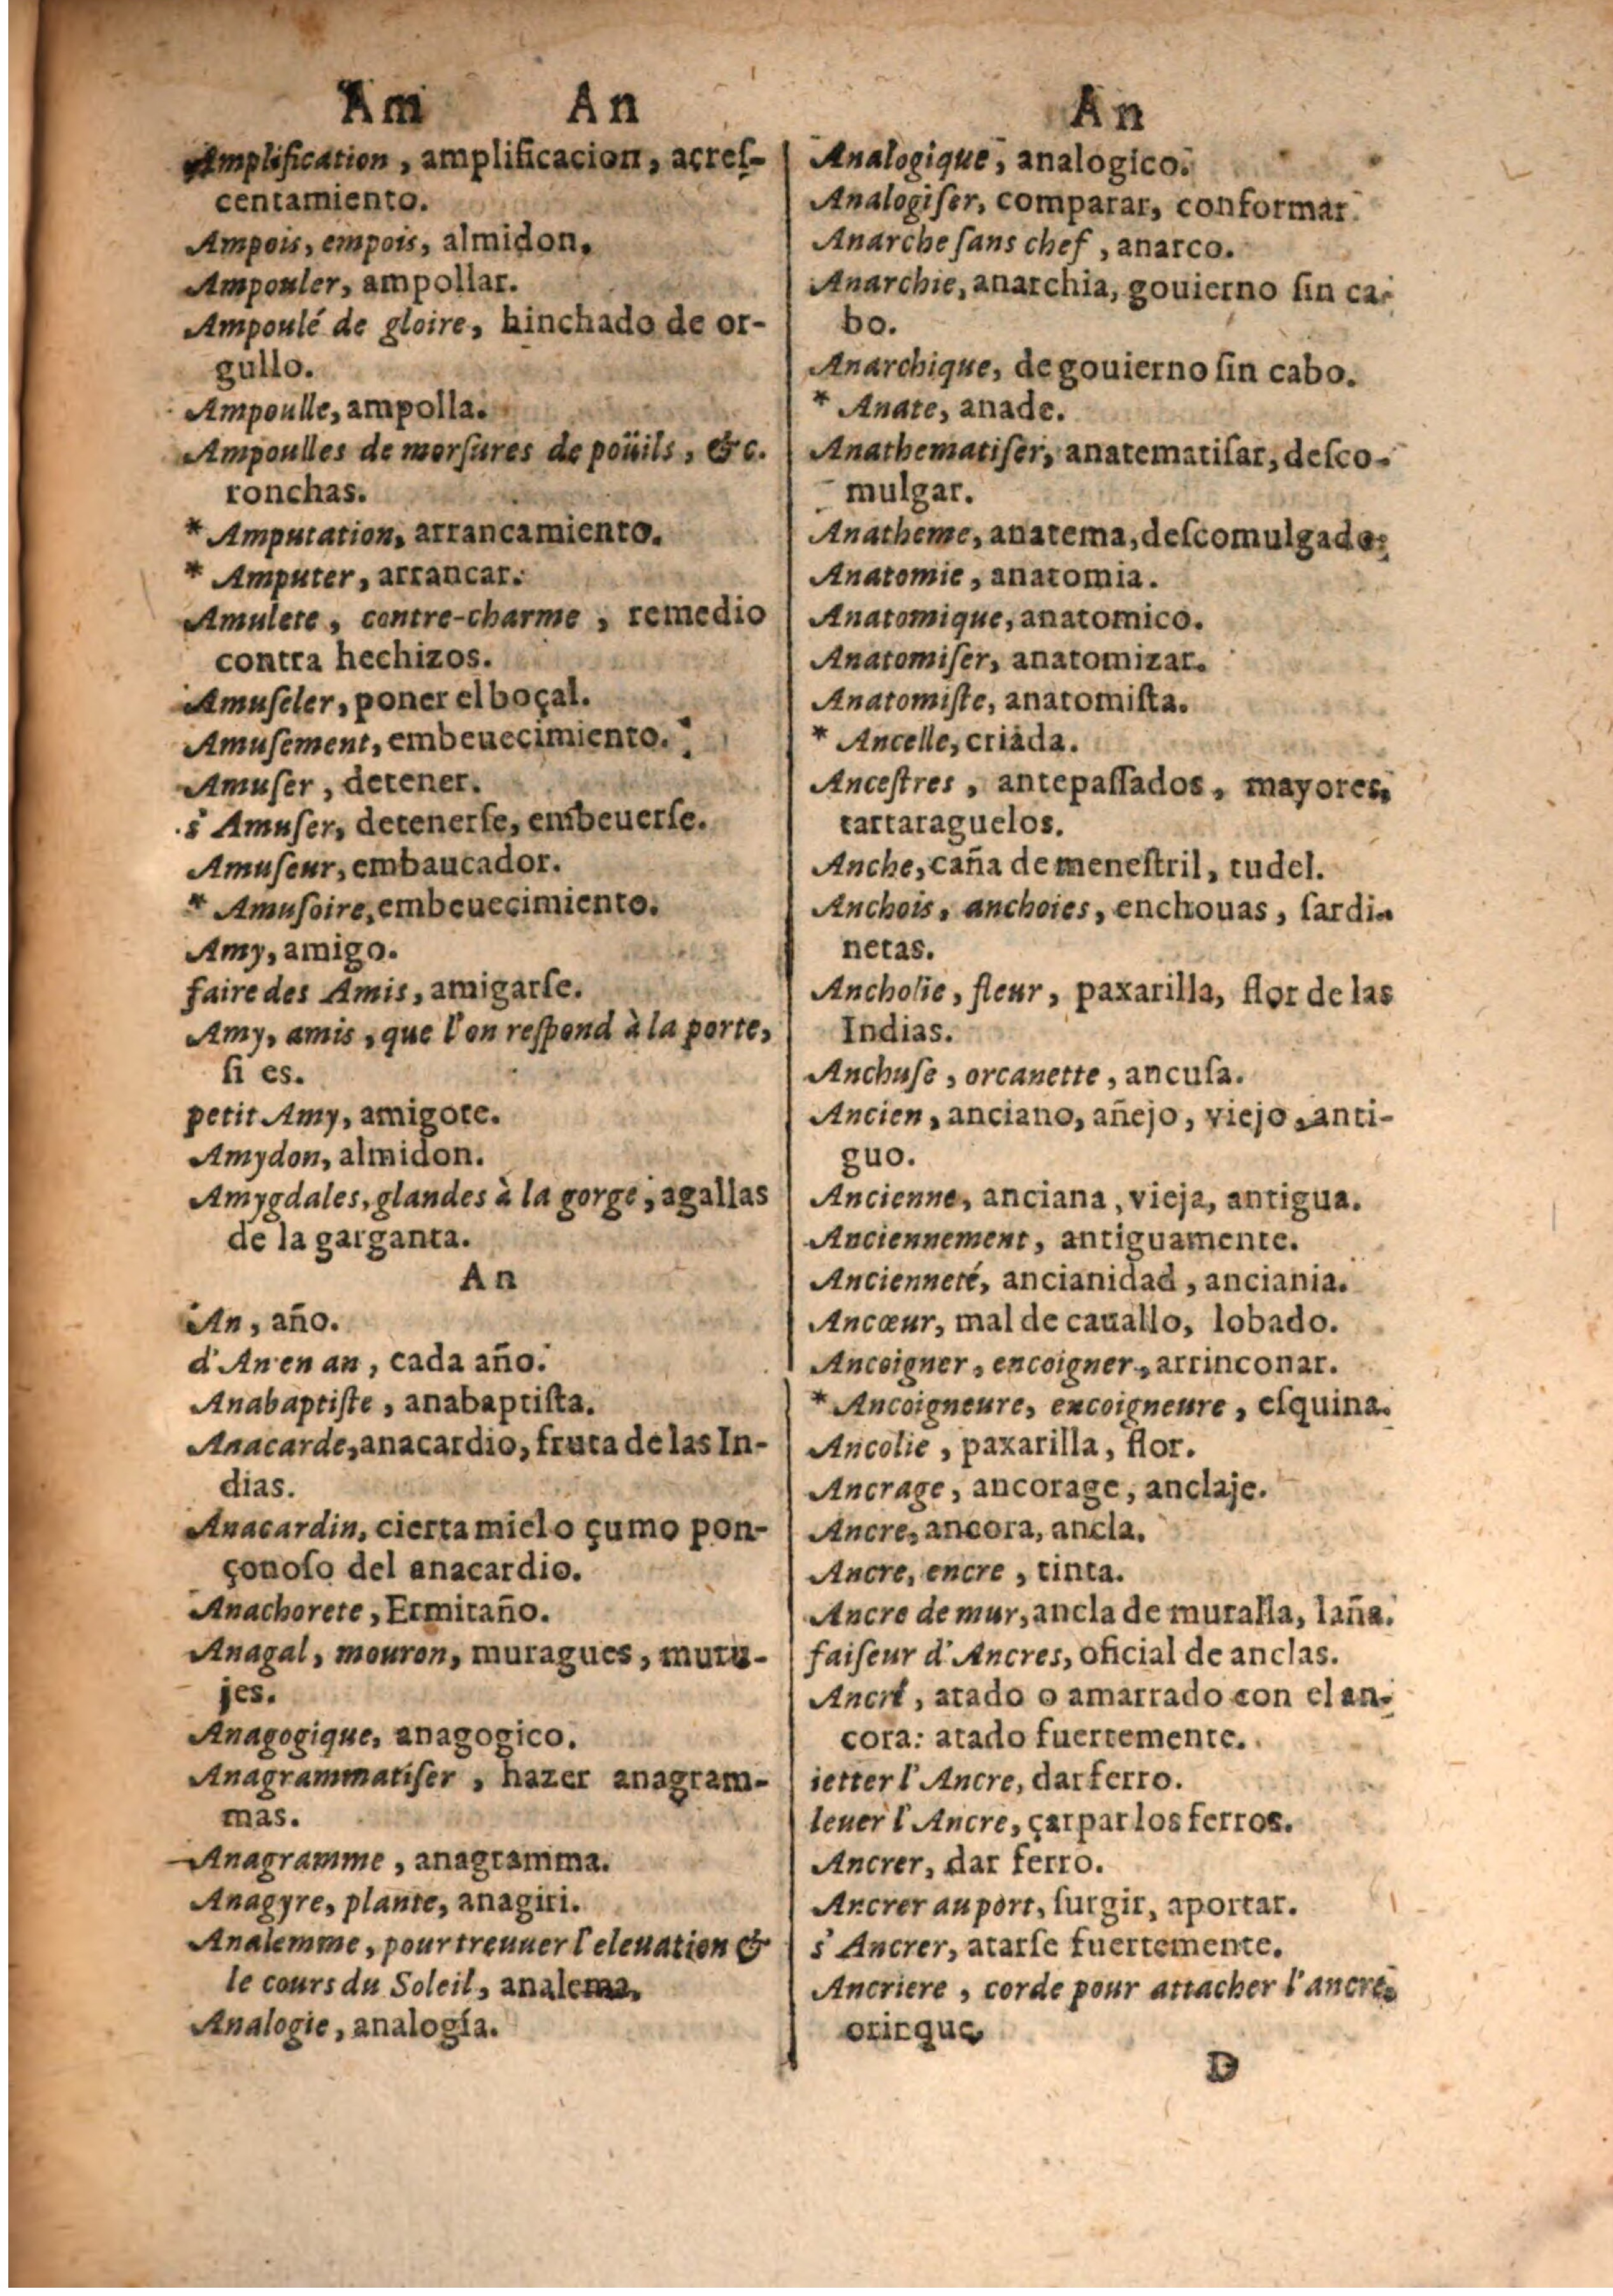 Am An
Amplification, amplificacion, acreſ-
centamiento.
Ampois, empois, almidon.
Ampouler, ampollar.
Ampoulé de gloire, hinchado de or-
gullo.
Ampoulle, ampolla.
Ampoulles de morſures de poüils, &c.
ronchas.
* Amputation, arrancamiento.
* Amputer, arrancar.
Amulete, contre-charme, remedio
contra hechizos.
Amuſeler, poner el boçal.
Amuſement, embeuecimiento.
Amuſer, detener.
s'Amuſer, detenerſe, embeuerſe.
Amuſeur, embaucador.
* Amuſoire, embeuecimiento.
Amy, amigo.
faire des Amis, amigarſe.
Amy, amis, que l'on reſpond à la porte,
ſi es.
petit Amy, amigote.
Amydon, almidon.
Amygdales, glandes à la gorge, agallas
de la garganta.
An
An, año.
d'An en an, cada año.
Anabaptiſte, anabaptiſta.
Anacarde, anacardio, fruta de las In-
dias.
Anacardin, cierta miel o çumo pon-
çonoſo del anacardio.
Anachorete, Ermitaño.
Anagal, mouron, muragues, muru-
jes.
Anagogique, anagogico.
Anagrammatiſer, hazer anagram-
mas.
Anagramme, anagramma.
Anagyre, plante, anagiri.
Analemme, pour treuuer l'eleuation &
le cours du Soleil, analema.
Analogie, analogía.
An
Analogique, analogico.
Analogiſer, comparar, conformar.
Anarche ſans chef, anarco.
Anarchie, anarchia, gouierno ſin ca-
bo.
Anarchique, de gouierno ſin cabo.
* Anate, anade.
Anathematiſer, anatematiſar, deſco-
mulgar.
Anatheme, anatema, deſcomulgado.
Anatomie, anatomia.
Anatomique, anatomico.
Anatomiſer, anatomizar.
Anatomiſte, anatomiſta.
* Ancelle, criada.
Anceſtres, antepaſſados, mayores,
tartaraguelos.
Anche, caña de meneſtril, tudel.
Anchois, anchoies, enchouas, ſardi-
netas.
Ancholie, fleur, paxarilla, flor de las
Indias.
Anchuſe, orcanette, ancuſa.
Ancien, anciano, añejo, viejo, anti-
guo.
Ancienne, anciana, vieja, antigua.
Anciennement, antiguamente.
Ancienneté, ancianidad, anciania.
Ancœur, mal de cauallo, lobado.
Ancoigner, encoigner, arrinconar.
* Ancoigneure, encoigneure, eſquina.
Ancolie, paxarilla, flor.
Ancrage, ancorage, anclaje.
Ancre, ancora, ancla.
Ancre, encre, tinta.
Ancre de mur, ancla de muralla, laña.
faiſeur d'Ancres, oficial de anclas.
Ancré, atado o amarrado con el an-
cora: atado fuertemente.
ietter l'Ancre, dar ferro.
leuer l'Ancre, çarpar los ferros.
Ancrer, dar ferro.
Ancrer au port, ſurgir, aportar.
s'Ancrer, atarſe fuertemente.
Ancriere, corde pour attacher l'ancre,
orinque.
D